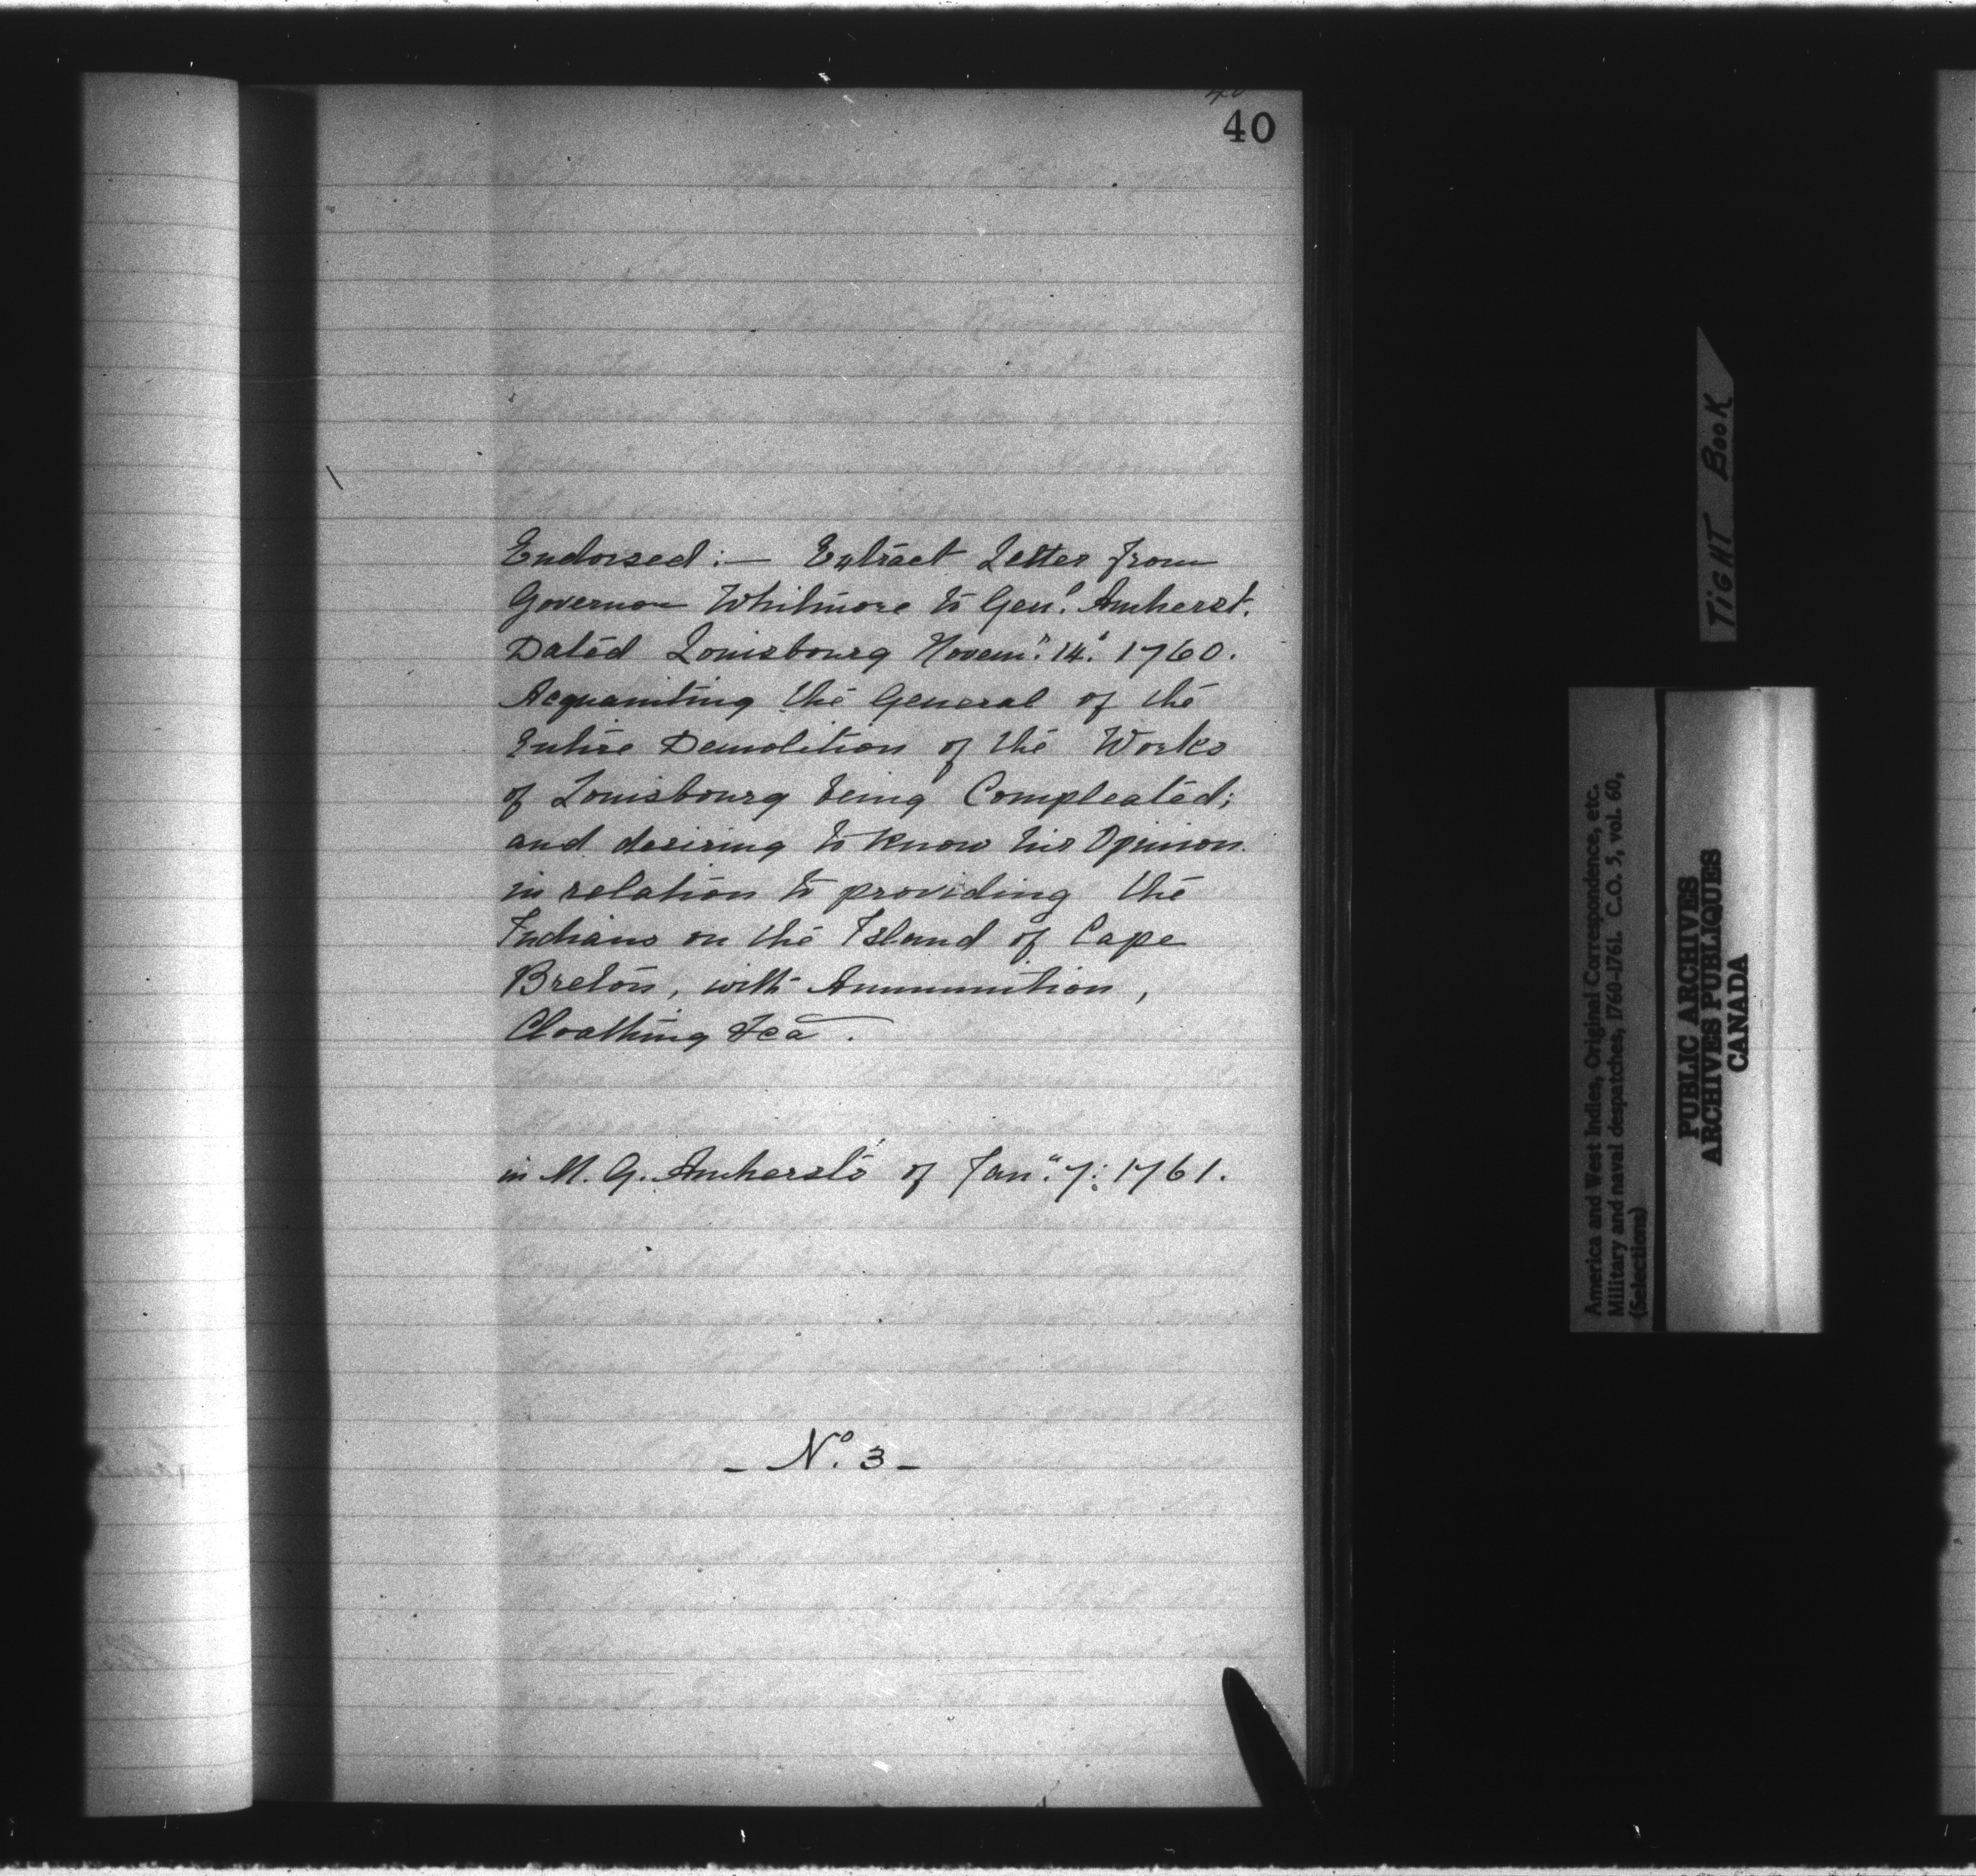 40
Endorsed:— Extract Letter from
Governor Whitmore to Gen.l Amherst.
Dated Louisbourg Novem.r 14.th 1760.
Acquainting the General of the
Entire Demolition of the Works
of Louisbourg being Compleated;
and desiring to know his Opinion
in relation to providing the
Indians on the Island of Cape
Breton, with Ammunition,
Cloathing &ca.
in M. G. Amherst's of Jan.ry 7: 1761.
- No. 3 -
TIGHT BOOK
America and West Indies, Original Correspondence, etc.
Military and naval despatches, 1760-1761. C.O. 5, vol. 60,
(Selections)
PUBLIC ARCHIVES
ARCHIVES PUBLIQUES
CANADA